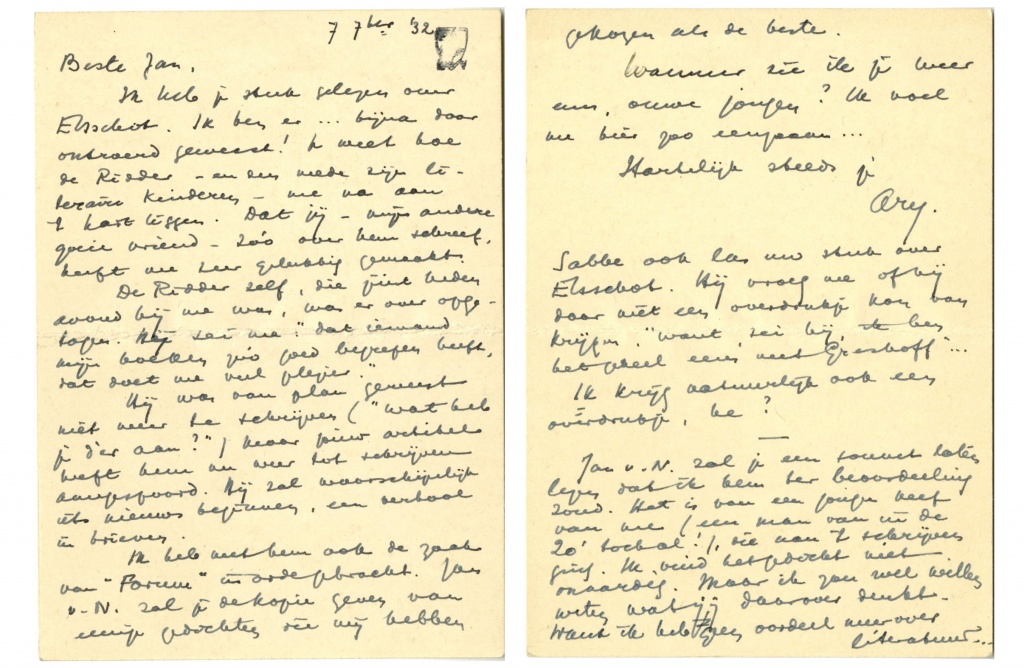 7 7ber '32
Beste Jan,
Ik heb je stuk gelezen over
Elsschot. Ik ben er ... bijna door
ontroerd geweest! Je weet hoe
de Ridder – en dus mede zijn li-
teraire kinderen – me na aan
't hart liggen. Dat jij – mijn andere
goeie vriend – zóó over hem schreef,
heeft me zeer gelukkig gemaakt.
De Ridder zelf, die juist heden
avond bij me was, was er over opge-
togen. Hij zei me: "dat iemand
mijn boeken zoo goed begrepen heeft,
dat doet me veel plezier."
Hij was van plan geweest
niet meer te schrijven ("wat heb
je d'er aan?") maar jouw artikel
heeft hem nu weer tot schrijven
aangespoord. Hij zal waarschijnlijk
iets nieuws beginnen, een verhaal
in brieven.
Ik heb met hem ook de zaak
van "Forum" in orde gebracht. Jan
v. N. zal je de kopie geven van
eenige gedichten die wij hebben
gekozen als de beste.
Wanneer zie ik je weer
eens, ouwe jongen? Ik voel
me hier zoo eenzaam...
Hartelijk steeds je
Ary.
Sabbe ook las uw stuk over
Elsschot. Hij vroeg me of hij
daar niet een overdrukje kon van
krijgen. "want, zei hij, ik ben
het geheel eens met Greshoff"...
Ik krijg natuurlijk ook een
overdrukje, he?
Jan v. N. zal je een sonnet laten
lezen dat ik hem ter beoordeeling
zond. Het is van een jongen neef
van me (een man van in de
20 schat!), die aan 't schrijven
ging. Ik vind het gedicht niet
onaardig. Maar ik zou wel willen
weten wat jij daarover denkt.
Want ik heb geen oordeel meer over
literatuur...